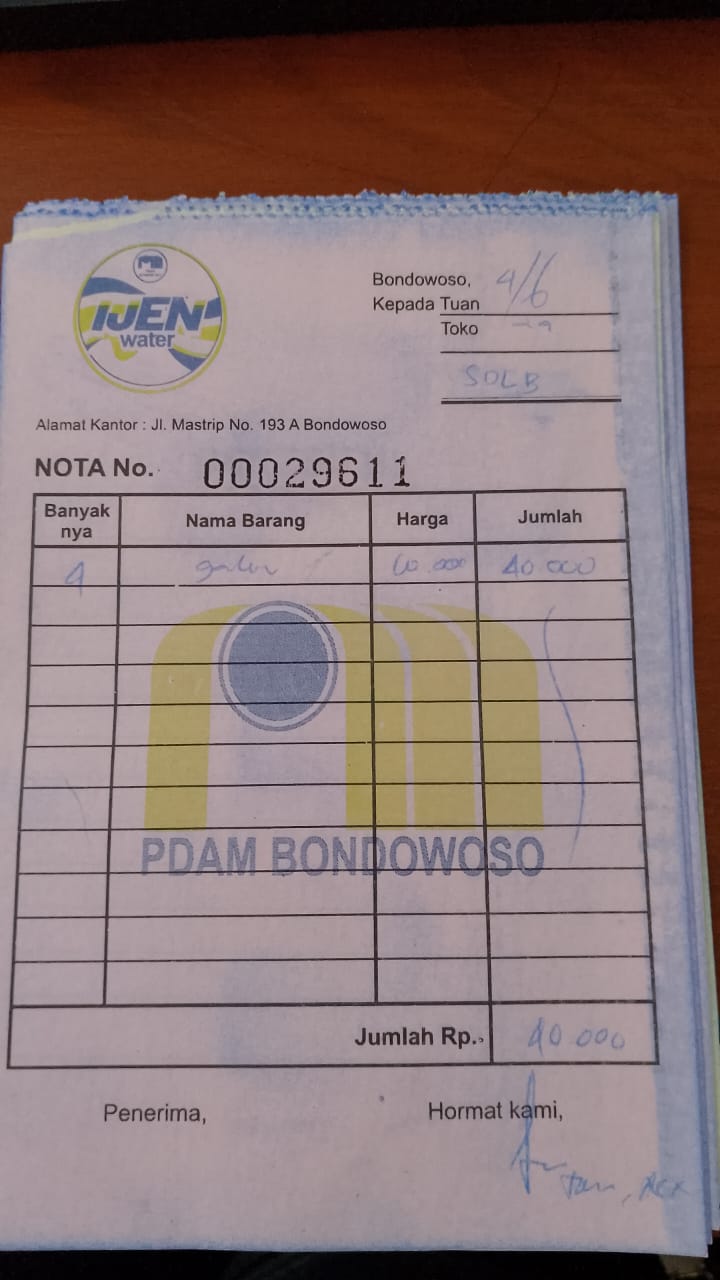 IJEN
water
Bondowoso, 4/6
Kepada Tuan
Toko
SDLB
Alamat Kantor : Jl. Mastrip No. 193 A Bondowoso
NOTA No. 00029611
Banyak nya Nama Barang Harga Jumlah
4 galon 10.000 40 000
PDAM BONDOWOSO
Jumlah Rp. 40.000
Penerima, Hormat kami,